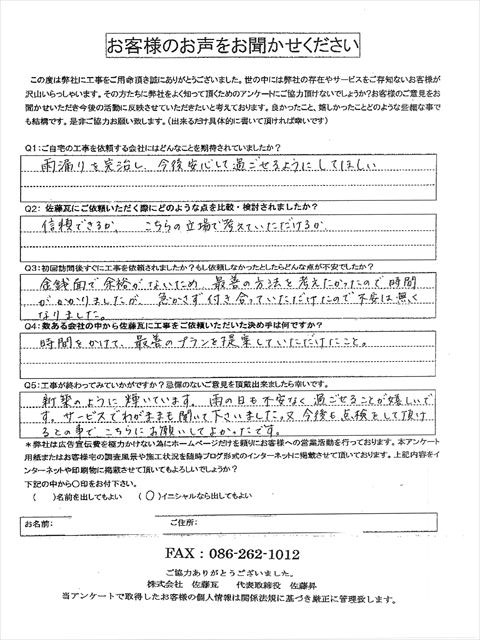 お客様のお声をお聞かせください
この度は弊社に工事をご用命頂き誠にありがとうございました。世の中には弊社の存在やサービスをご存知ないお客様が
沢山いらっしゃいます。その方たちに弊社をよく知って頂くためのアンケートにご協力頂けないでしょうか?お客様のご意見をお
聞かせいただき今後の活動に反映させていただきたいと考えております。良かったこと、嬉しかったことどのような些細な事で
も結構です。是非ご協力お願い致します。(出来るだけ具体的に書いて頂ければ幸いです)
Q1:ご自宅の工事を依頼する会社にはどんなことを期待されていましたか?
雨漏りを完治し、今後安心して過ごせるようにしてほしい
Q2: 佐藤瓦にご依頼いただく際にどのような点を比較・検討されましたか?
信頼できるか、 こちらの立場で考えていただけるか、
Q3:初回訪問後すぐに工事を依頼されましたか?もし依頼しなかったとしたらどんな点が不安でしたか?
金銭面で余裕がないため、最善の方法を考えたかったので時間
がかかりましたが、急かさず付き合っていただけたので不安は無く
なりました。
Q4:数ある会社の中から佐藤瓦に工事をご依頼いただいた決め手は何ですか?
時間をかけて、最善のプランを提案していただけたこと。
Q5:工事が終わってみていかがですか?忌憚のないご意見を頂戴出来ましたら幸いです。
新築のように輝いています。雨の日も不安なく過ごせることが嬉しいで
す。サービスでわがままも聞いて下さいました。又今後も点検をして頂け
るとの事で、こちらにお願いしてよかったです。
*弊社は広告宣伝費を極力かけない為にホームページだけを頼りにお客様への営業活動を行っております。本アンケート
用紙またはお客様宅の調査風景や施工状況を随時ブログ形式のインターネットに掲載させて頂いております。上記内容をイ
ンターネットや印刷物に掲載させて頂いてもよろしいでしょうか?
下記の中から〇印をお付下さい。
( )名前を出してもよい (〇)イニシャルなら出してもよい
お名前: ご住所:
FAX:086-262-1012
ご協力ありがとうございました。
株式会社 佐藤瓦 代表取締役 佐藤昇
当アンケートで取得したお客様の個人情報は関係法規に基づき厳正に管理致します。